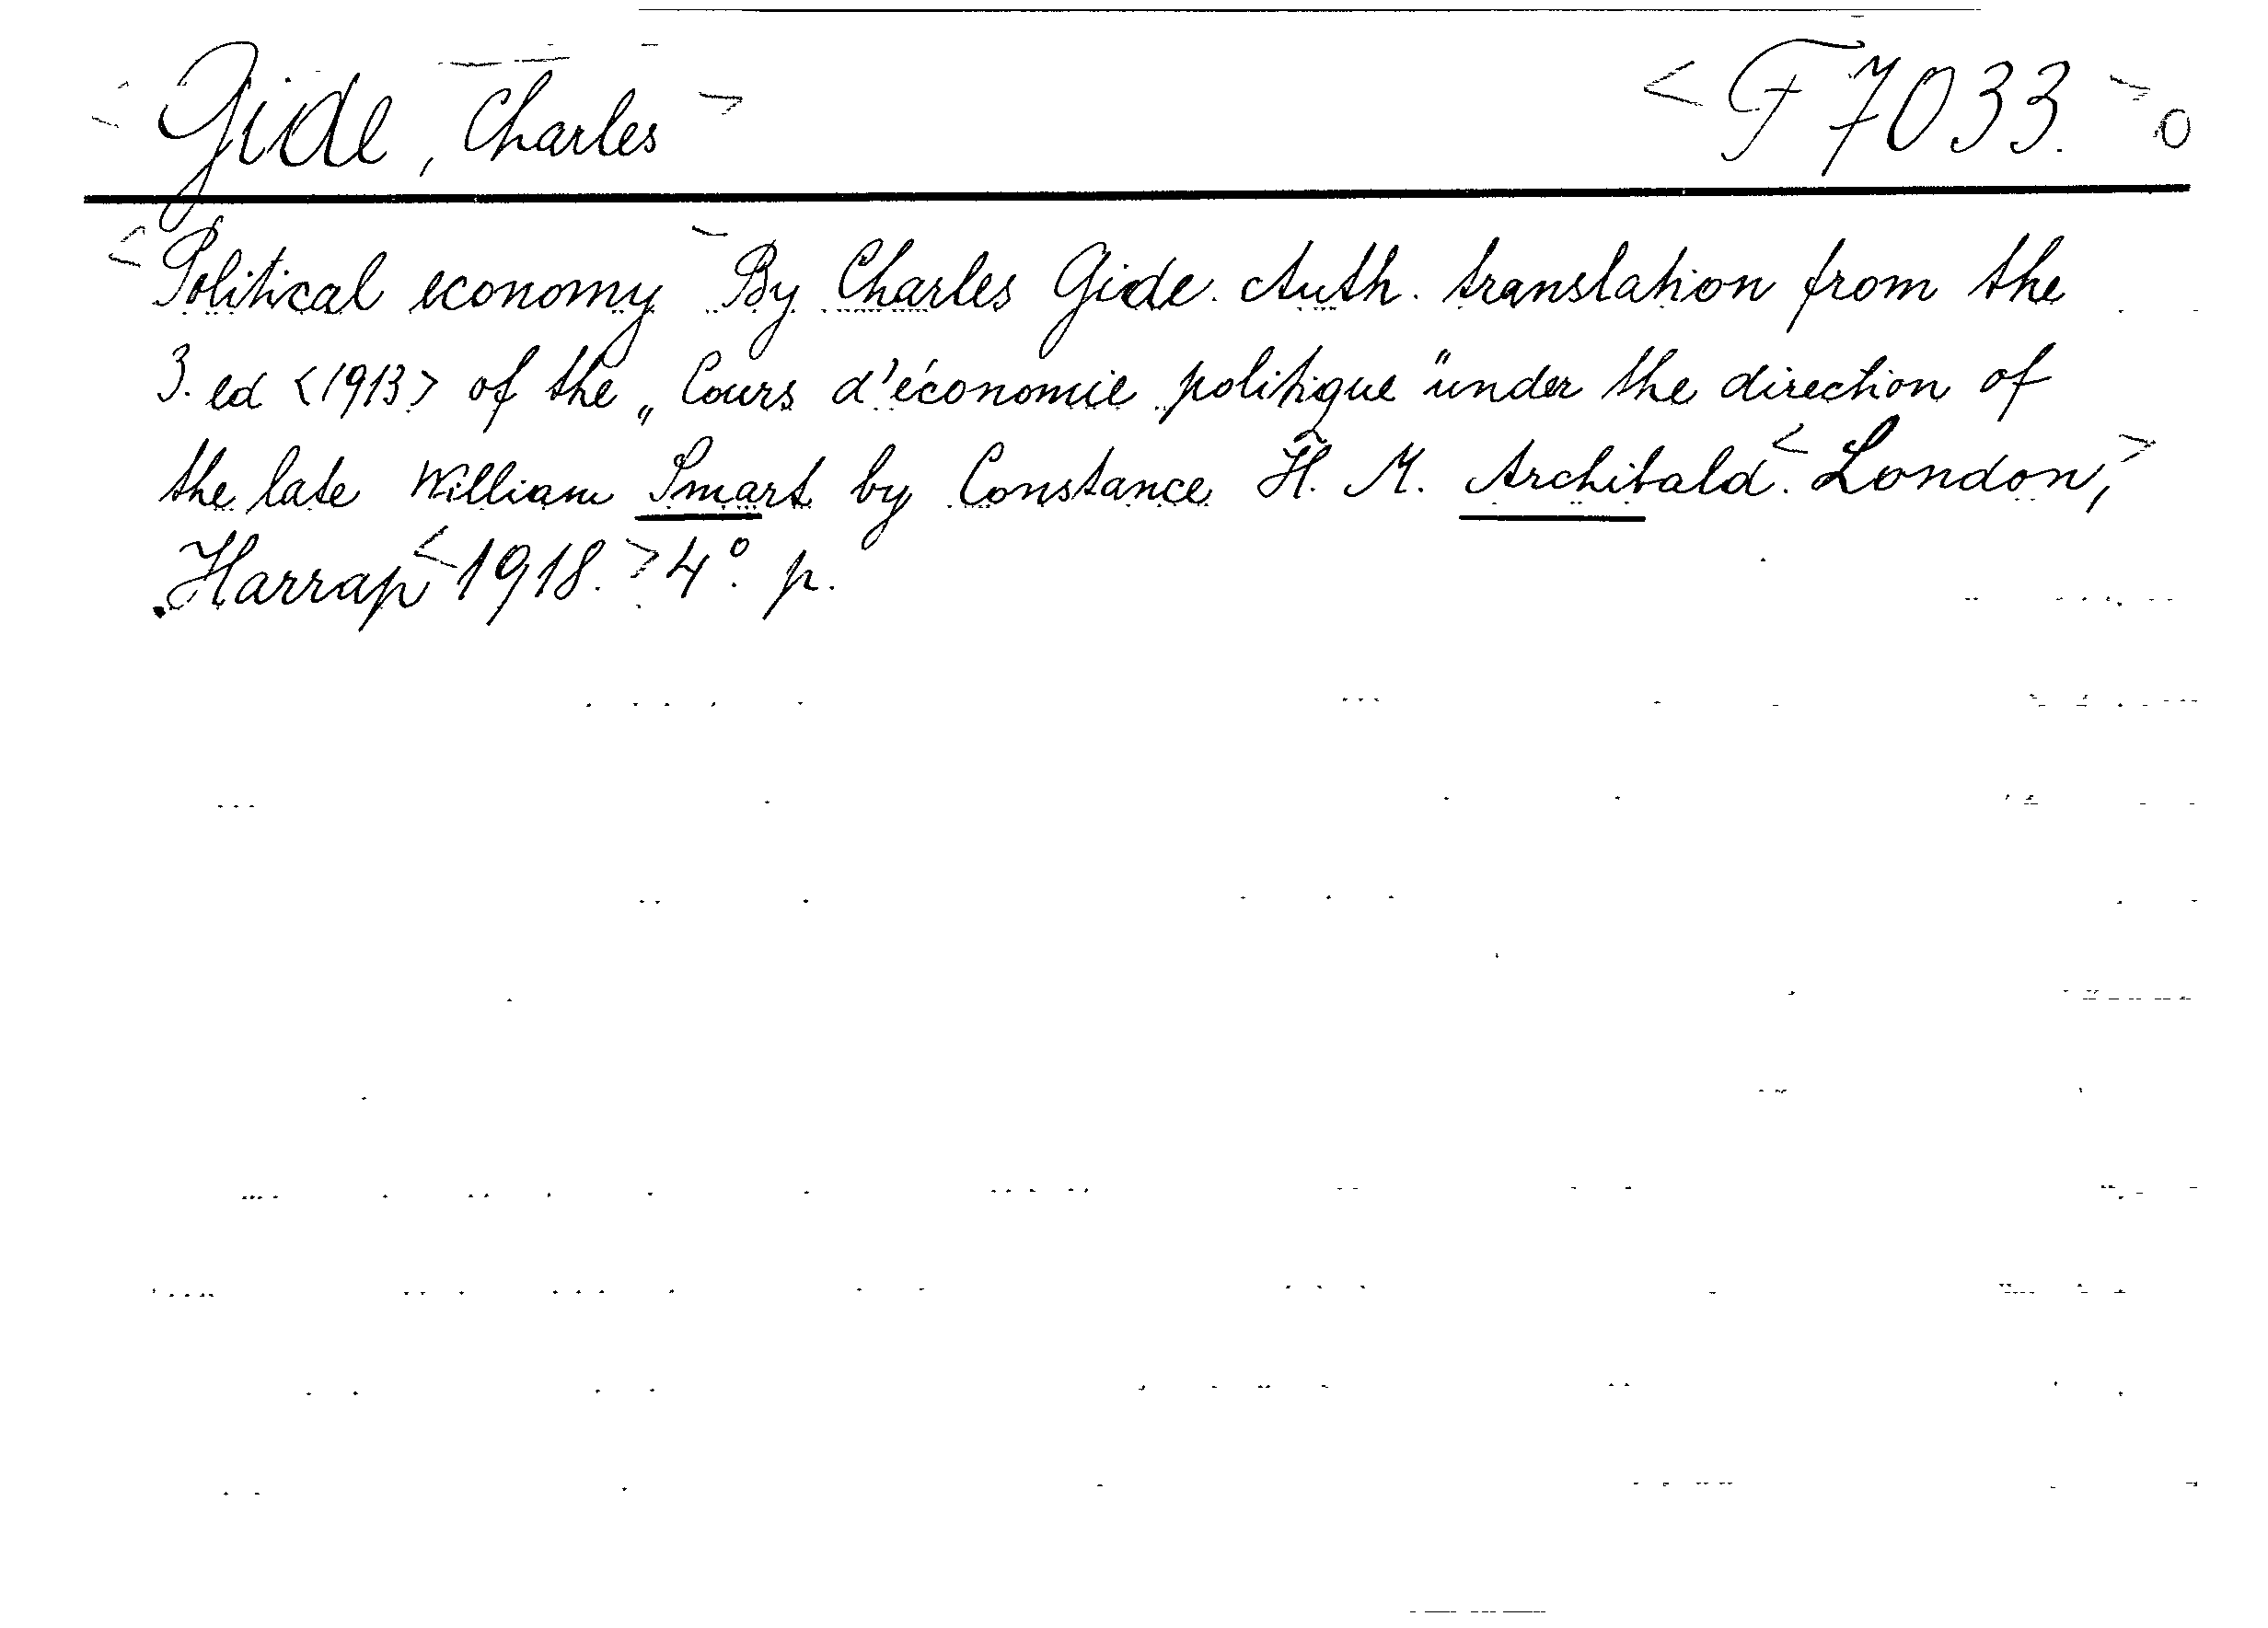 <Gide, Charles> <F7033.> o
<Political economy> By Charles Gide. Auth. translation from the
3. ed <1913> of the „Cours d'économie politique" under the direction of
the late William Smart by Constance H. M. Archibald. <London,>
Harrap <1918.> 4°. p.